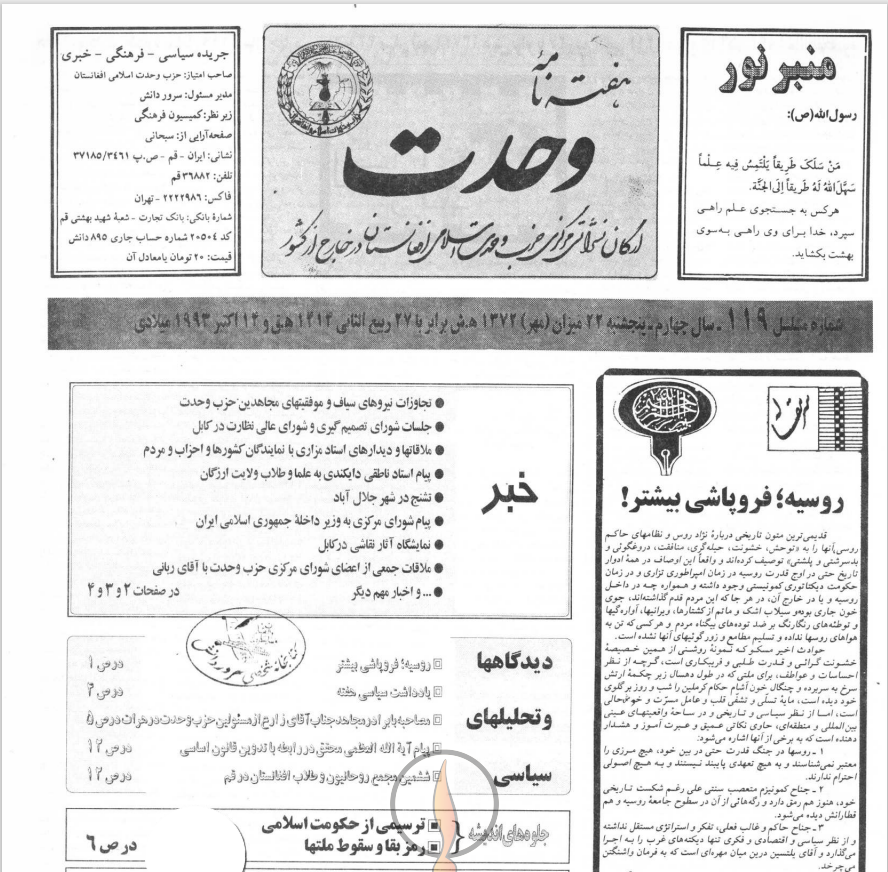 منبر نور
رسول الله(ص):
مَن سَلَکَ طَریقاً یَلْتَمِسُ فیه عِلْماً
سَهَّلَ اللهُ لَهُ طَریقاً اِلَی الجَنَّة.
هرکس به جستجوی علم راهی
سپرد، خدا برای وی راهی به سوی
بهشت بگشاید.
هفته نامه
وحدت
ارگان نشراتی مرکزی حزب وحدت اسلامی افغانستان در خارج از کشور
جریده سیاسی - فرهنگی - خبری
صاحب امتیاز: حزب وحدت اسلامی افغانستان
مدیر مسئول: سرور دانش
زیر نظر: کمیسیون فرهنگی
صفحه‌آرایی از: سبحانی
نشانی: ایران - قم - ص.پ ۳۷۱۸۵/۳۴۶۱
تلفن: ۳۶۸۸۲ قم
فاکس: ۲۲۲۲۹۸۶ - تهران
شمارهٔ بانکی: بانک تجارت - شعبهٔ شهید بهشتی قم
کد ۲۰۵۰۴ شماره حساب جاری ۸۹۵ دانش
قیمت: ۲۰ تومان یا معادل آن
شماره مسلسل ۱۱۹ - سال چهارم - پنجشنبه ۲۲ میزان (مهر) ۱۳۷۲ ه.ش برابر با ۲۷ ربیع الثانی ۱۴۱۴ ه.ق و ۱۴ اکتبر ۱۹۹۳ میلادی
روسیه؛ فروپاشی بیشتر!
قدیمی‌ترین متون تاریخی دربارهٔ نژاد روس و نظامهای حاکم
روسی، آنها را به «توحش، خشونت، حیله‌گری، منافقت، دروغگوئی و
بدسرشتی و پلشتی» توصیف کرده‌اند و واقعاً این اوصاف در همهٔ ادوار
تاریخ حتی در اوج قدرت روسیه در زمان امپراطوری تزاری و در زمان
حکومت دیکتاتوری کمونیستی وجود داشته و همواره چه در داخل
روسیه و یا در خارج آن، در هر جا که این مردم قدم گذاشته‌اند، جوی
خون جاری بوده و سیلاب اشک و ماتم از کشتارها، ویرانیها، آواره‌گیها
و توطئه‌های رنگارنگ بر ضد توده‌های بیگناه مردم و هر کسی که تن به
هواهای روسها نداده و تسلیم مطامع و زورگوئیهای آنها نشده است.
حوادث اخیر مسکو که نمونهٔ روشنی از همین خصیصهٔ
خشونت گرائی و قدرت طلبی و فریبکاری است، گرچه از نظر
احساسات و عواطف، برای ملتی که در طول دهسال زیر چکمهٔ ارتش
سرخ به سربرده و چنگال خون آشام حکام کرملین را شب و روز بر گلوی
خود دیده است، مایهٔ تسلّی و تشفّی قلب و عامل مسرّت و خوشحالی
است، امّا از نظر سیاسی و تاریخی و در ساحهٔ واقعیتهای عینی
بین‌المللی و منطقه‌ای، حاوی نکاتی عمیق و عبرت آموز و هشدار
دهنده است که به برخی از آنها اشاره می‌شود:
۱ - روسها در جنگ قدرت حتی در بین خود، هیچ مرزی را
معتبر نمی‌شناسند و به هیچ تعهدی پایبند نیستند و به هیچ اصولی
احترام ندارند.
۲ - جناح کمونیزم متعصب سنتی علی رغم شکست تاریخی
خود، هنوز هم رمق دارد و رگه‌هائی از آن در سطوح جامعهٔ روسیه و هم
قطارانش دیده می‌شود.
۳ - جناح حاکم و غالب فعلی، تفکر و استراتژی مستقل نداشته
و از نظر سیاسی و اقتصادی و فکری تنها دیکته‌های غرب را به اجرا
می‌گذارد و آقای یلتسین درین میان مهره‌ای است که به فرمان واشنگتن
می‌چرخد.
خبر
● تجاوزات نیروهای سیاف و موفقیتهای مجاهدین حزب وحدت
● جلسات شورای تصمیم گیری و شورای عالی نظارت در کابل
● ملاقاتها و دیدارهای استاد مزاری با نمایندگان کشورها و احزاب و مردم
● پیام استاد ناطقی دایکندی به علما و طلاب ولایت ارزگان
● تشنج در شهر جلال آباد
● پیام شورای مرکزی به وزیر داخلهٔ جمهوری اسلامی ایران
● نمایشگاه آثار نقاشی در کابل
● ملاقات جمعی از اعضای شورای مرکزی حزب وحدت با آقای ربانی
● ... و اخبار مهم دیگر در صفحات ۲ و ۳ و ۴
دیدگاهها
وتحلیلهای
سیاسی
روسیه؛ فروپاشی بیشتر در ص ۱
یادداشت سیاسی هفته در ص ۴
مصاحبه با برادر مجاهد جناب آقای زارع از مسئولین حزب وحدت در هرات در ص ۵
پیام آیة الله العظمی محقق در رابطه با تدوین قانون اساسی در ص ۱۲
ششمین مجمع روحانیون و طلاب افغانستان در قم در ص ۱۲
جلوه‌های اندیشه
ترسیمی از حکومت اسلامی
رمز بقا و سقوط ملتها در ص ۶